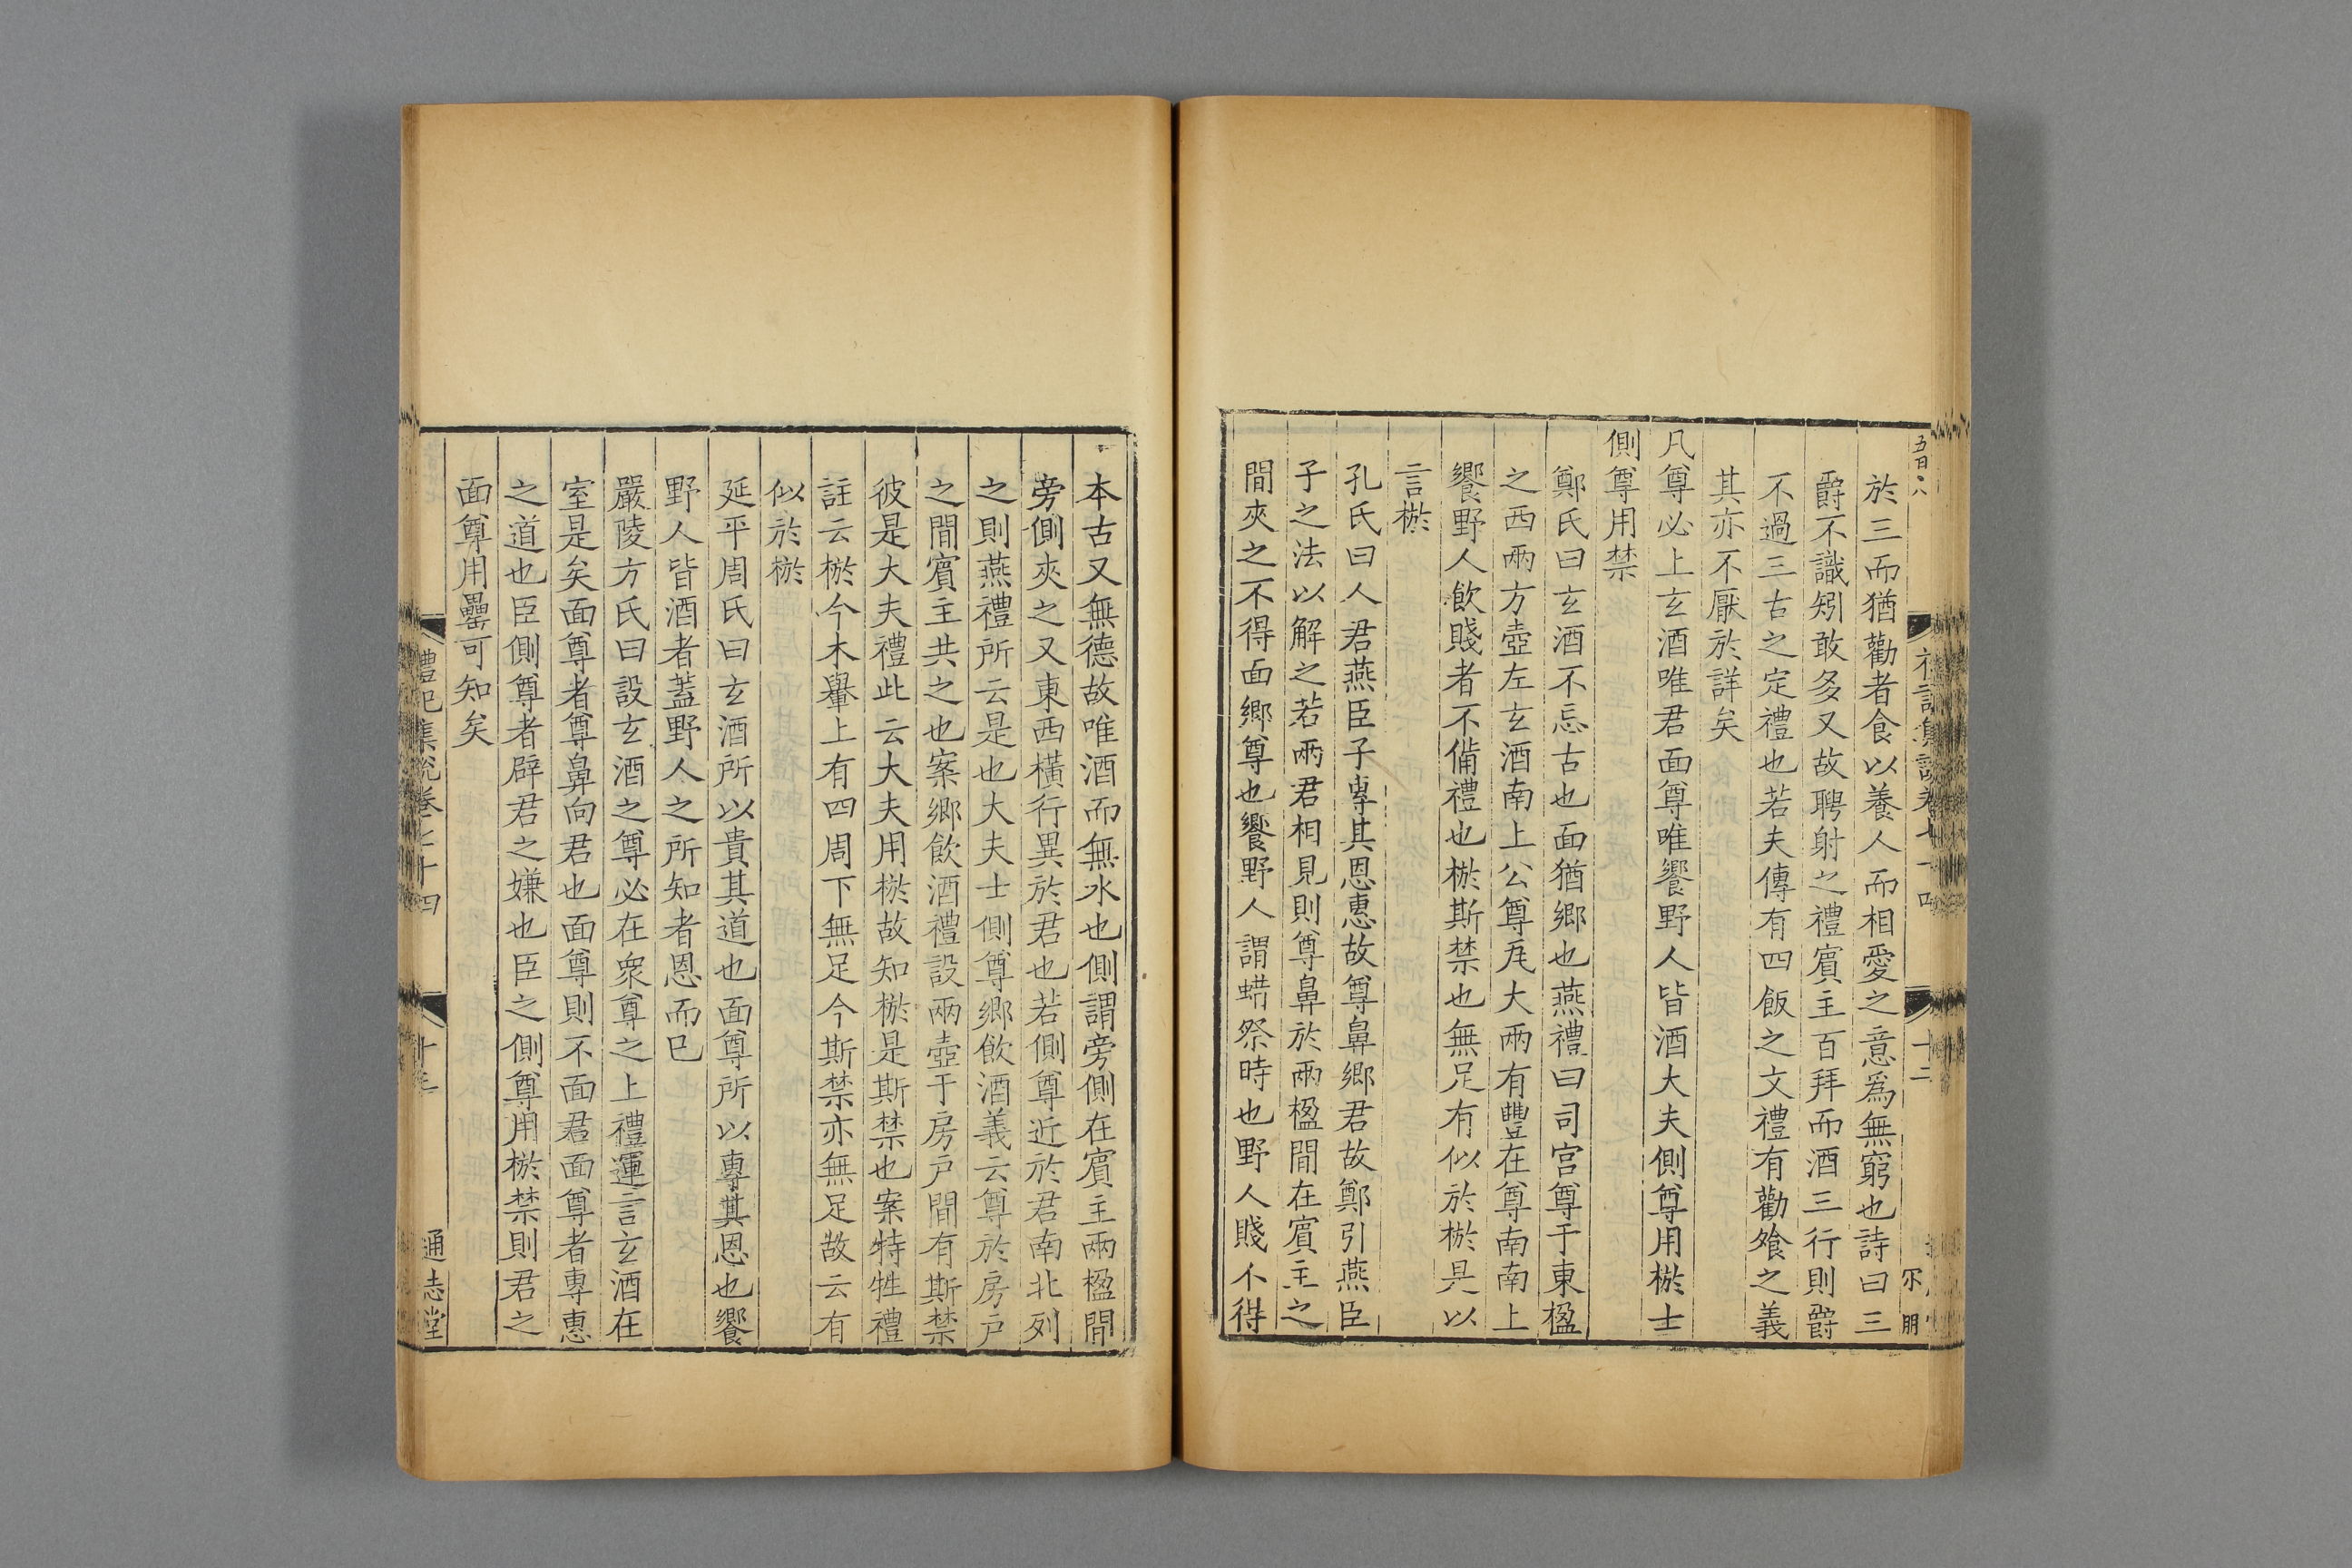 於三而猶勸者食以養人而相愛之意爲無窮也詩曰三
爵不識矧敢多又故聘射之禮賓主百拜而酒三行則爵
不過三古之定禮也若夫傳有四飯之文禮有勸飧之義
其亦不厭於詳矣
凡尊必上玄酒唯君面尊唯饗野人皆酒大夫側尊用棜士
側尊用禁
鄭氏曰玄酒不忘古也面猶鄉也燕禮曰司宮尊于東楹
之西兩方壺左玄酒南上公尊瓦大兩有豐在尊南南上
饗野人飲賤者不備禮也棜斯禁也無足有似於棜是以
言棜
孔氏曰人君燕臣子專其恩惠故尊鼻鄉君故鄭引燕臣
子之法以解之若兩君相見則尊鼻於兩楹間在賓主之
間夾之不得面鄉尊也饗野人謂蜡祭時也野人賤不得
本古又無德故唯酒而無水也側謂旁側在賓主兩楹間
旁側夾之又東西橫行異於君也若側尊近於君南北列
之則燕禮所云是也大夫士側尊鄉飲酒義云尊於房戶
之間賓主共之也案鄉飲酒禮設兩壺于房戶間有斯禁
彼是大夫禮此云大夫用棜故知棜是斯禁也案特牲禮
註云棜今木轝上有四周下無足今斯禁亦無足故云有
似於棜
延平周氏曰玄酒所以貴其道也面尊所以專其恩也饗
野人皆酒者蓋野人之所知者恩而已
嚴陵方氏曰設玄酒之尊必在衆尊之上禮運言玄酒在
室是矣面尊者尊鼻向君也面尊則不面君面尊者專惠
之道也臣側尊者辟君之嫌也臣之側尊用棜禁則君之
面尊用罍可知矣
禮記集說卷七十四
通志堂